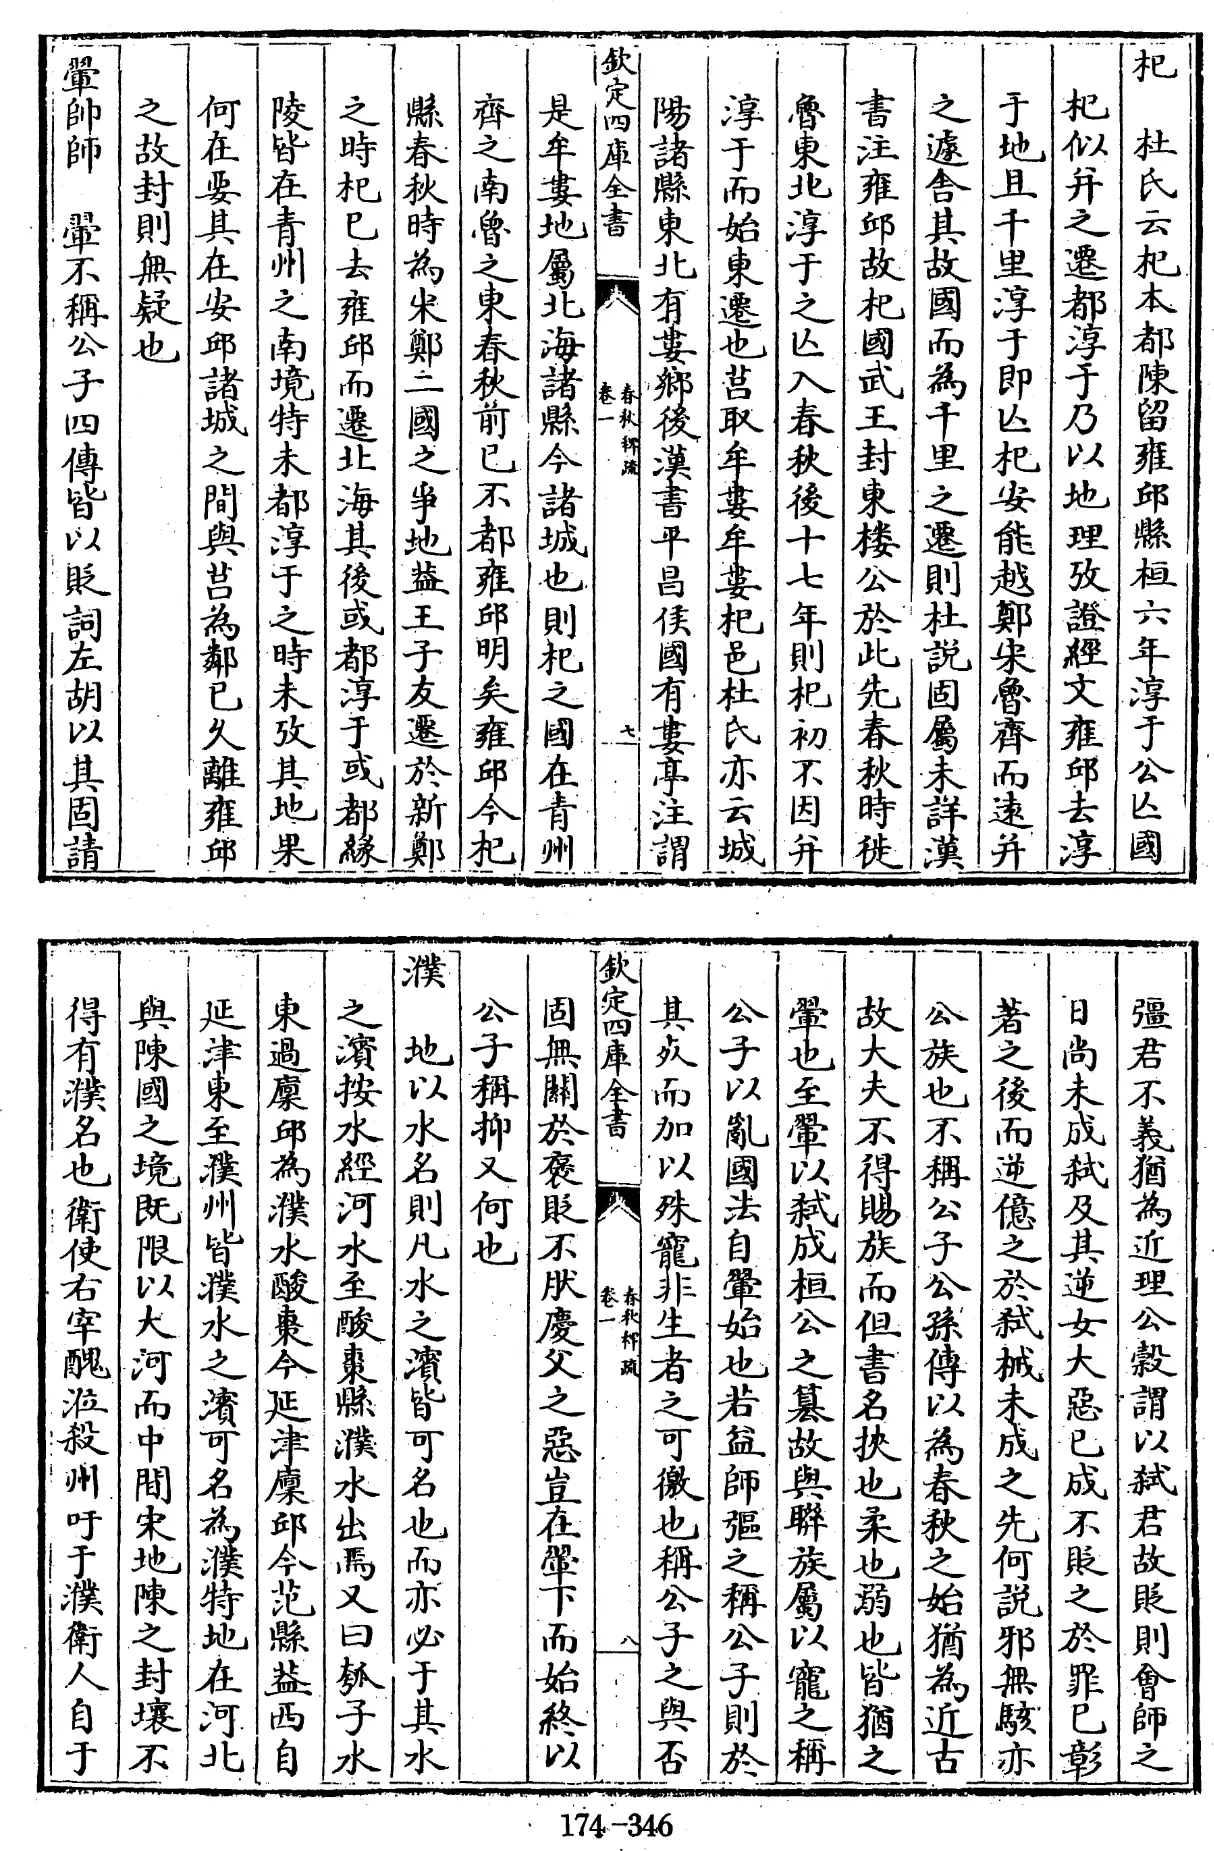 杞　杜氏云杞本都陳留雍邱縣桓六年淳于公亾國
杞似并之遷都淳于乃以地理攷證經文雍邱去淳
于地且千里淳于即亾杞安能越鄭宋魯齊而遠并
之遽舍其故國而為千里之遷則杜説固屬未詳漢
書注雍邱故杞國武王封東樓公於此先春秋時徙
魯東北淳于之亾入春秋後十七年則杞初不因并
淳于而始東遷也莒取牟婁牟婁杞邑杜氏亦云城
陽諸縣東北有婁鄉後漢書平昌侯國有婁亭注謂
欽定四庫全書
春秋稗疏
卷一
七
是牟婁地屬北海諸縣今諸城也則杞之國在青州
齊之南魯之東春秋前已不都雍邱明矣雍邱今杞
縣春秋時為宋鄭二國之爭地葢王子友遷於新鄭
之時杞已去雍邱而遷北海其後或都淳于或都緣
陵皆在青州之南境特未都淳于之時未攷其地果
何在要其在安邱諸城之間與莒為鄰已久離雍邱
之故封則無疑也
翬帥師　翬不稱公子四傳皆以貶詞左胡以其固請
彊君不義猶為近理公穀謂以弑君故貶則會師之
日尚未成弑及其逆女大惡已成不貶之於罪已彰
著之後而逆億之於弑械未成之先何説邪無駭亦
公族也不稱公子公孫傳以為春秋之始猶為近古
故大夫不得賜族而但書名挾也柔也溺也皆猶之
翬也至翬以弑成桓公之簒故與聯族屬以寵之稱
公子以亂國法自翬始也若益師彄之稱公子則於
其歿而加以殊寵非生者之可徼也稱公子之與否
欽定四庫全書
春秋稗疏
卷一
八
固無關於褒貶不肰慶父之惡豈在翬下而始終以
公子稱抑又何也
濮　地以水名則凡水之濱皆可名也而亦必于其水
之濱按水經河水至酸棗縣濮水出焉又曰瓠子水
東過廩邱為濮水酸棗今延津廩邱今范縣葢西自
延津東至濮州皆濮水之濱可名為濮特地在河北
與陳國之境既限以大河而中間宋地陳之封壤不
得有濮名也衛使右宰醜涖殺州吁于濮衛人自于
174-346